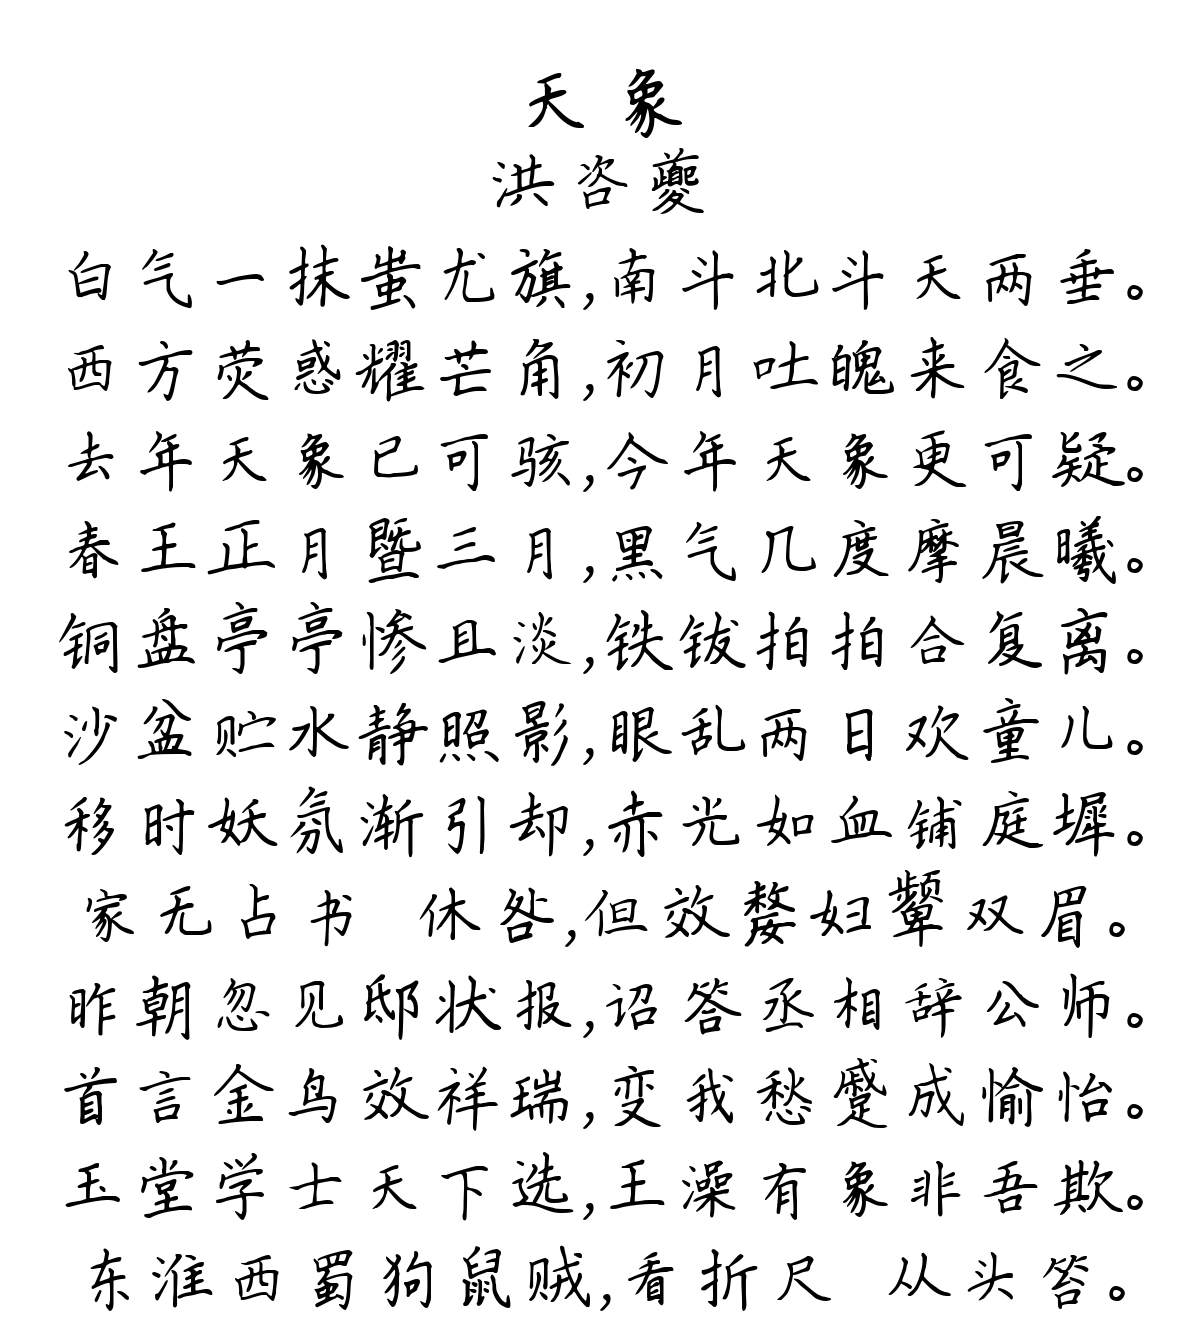 天象
洪咨夔
白气一抹蚩尤旗,南斗北斗天两垂。
西方荧惑耀芒角,初月吐魄来食之。
去年天象已可骇,今年天象更可疑。
春王正月暨三月,黑气几度摩晨曦。
铜盘亭亭惨且淡,铁钹拍拍合复离。
沙盆贮水静照影,眼乱两日欢童儿。
移时妖氛渐引却,赤光如血铺庭墀。
家无占书 休咎,但效嫠妇颦双眉。
昨朝忽见邸状报,诏答丞相辞公师。
首言金鸟效祥瑞,变我愁蹙成愉怡。
玉堂学士天下选,王澡有象非吾欺。
东淮西蜀狗鼠贼,看折尺 从头笞。